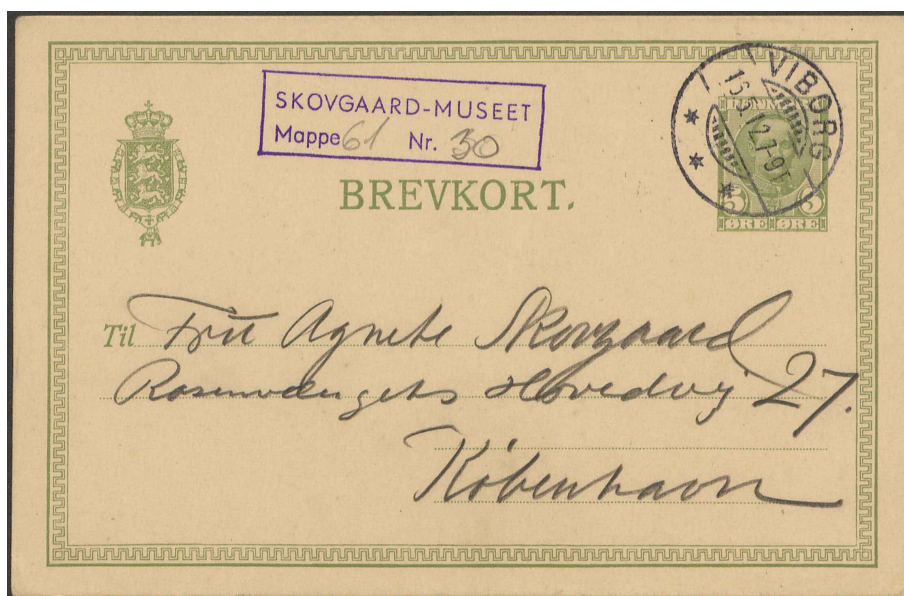 SKOVGAARD-MUSEET
Mappe 61 Nr. 30
VIBORG
BREVKORT.
5 5
ØRE ØRE
Til Fru Agnete Skovgaard
Rosenvængets Hovedvej 27.
København